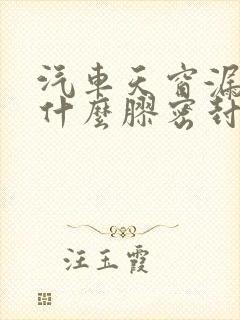 汽車天窗漏
什麼膠密封
汪玉霞